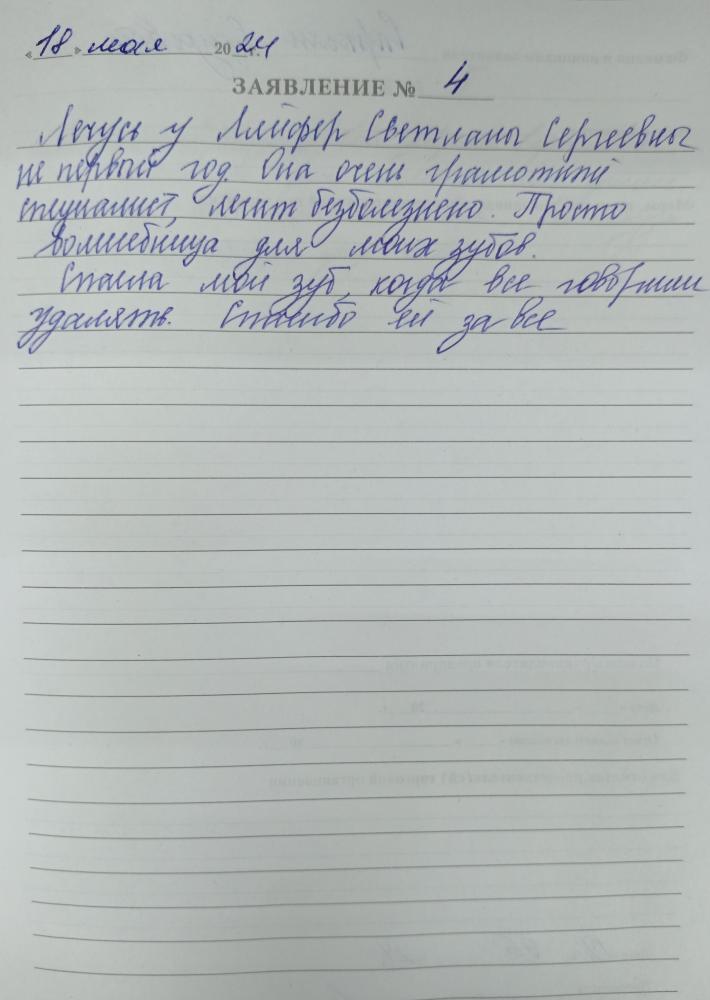 «18» мая 2024 г.
ЗАЯВЛЕНИЕ № 4
Лечусь у Светланы Сергеевны
не первый год. Она очень грамотный
специалист, лечит безболезнено. Просто
волшебница для моих зубов.
Спасла мой зуб, когда все говорили
удалять. Спасибо ей за все